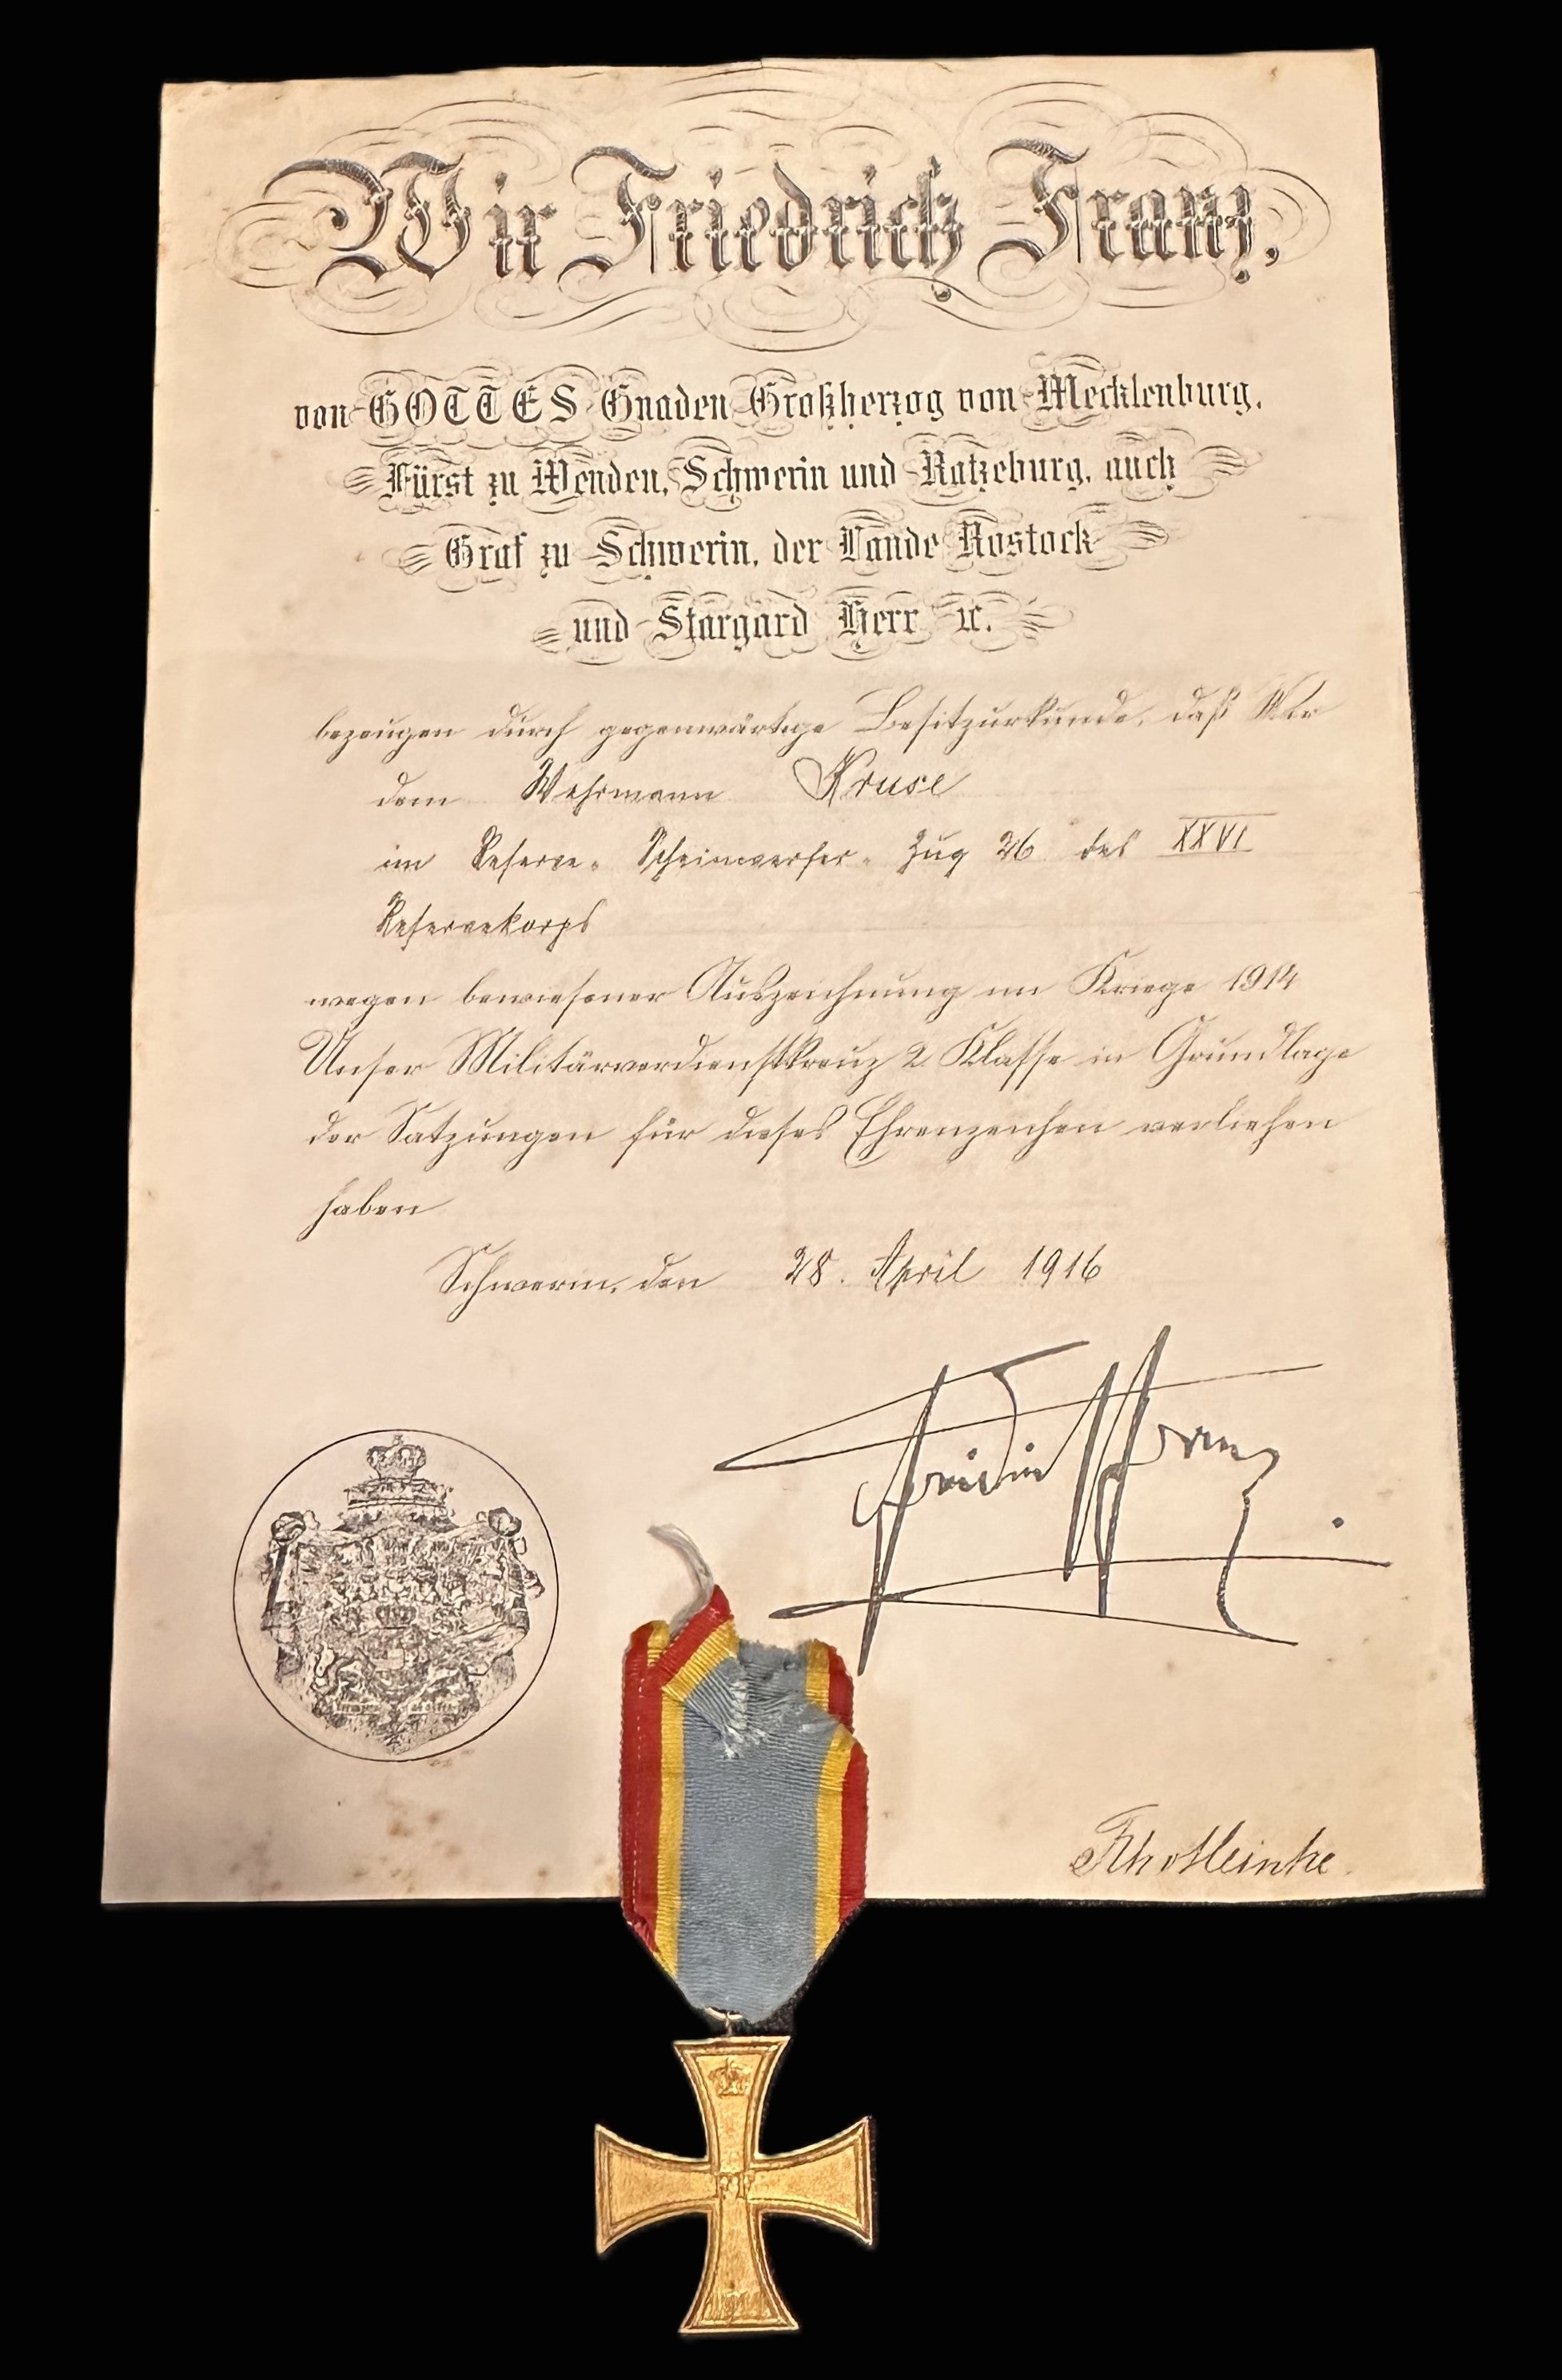 Wir Friedrich Franz,
von GOTTES Gnaden Großherzog von Mecklenburg,
Fürst zu Wenden, Schwerin und Ratzeburg, auch
Graf zu Schwerin, der Lande Rostock
und Stargard Herr ꝛc.
bezeugen durch gegenwärtige Besitzurkunde, daß Wir
dem Wehrmann Kruse
im Reserve-Scheinwerfer-Zug 26 des XXVI
Reservekorps
wegen bewiesener Auszeichnung im Kriege 1914
Unser Militärverdienstkreuz 2 Klasse in Grundlage
der Satzungen für dieses Ehrenzeichen verliehen
haben
Schwerin, den 28. April 1916
Friedrich Franz
FF
1914